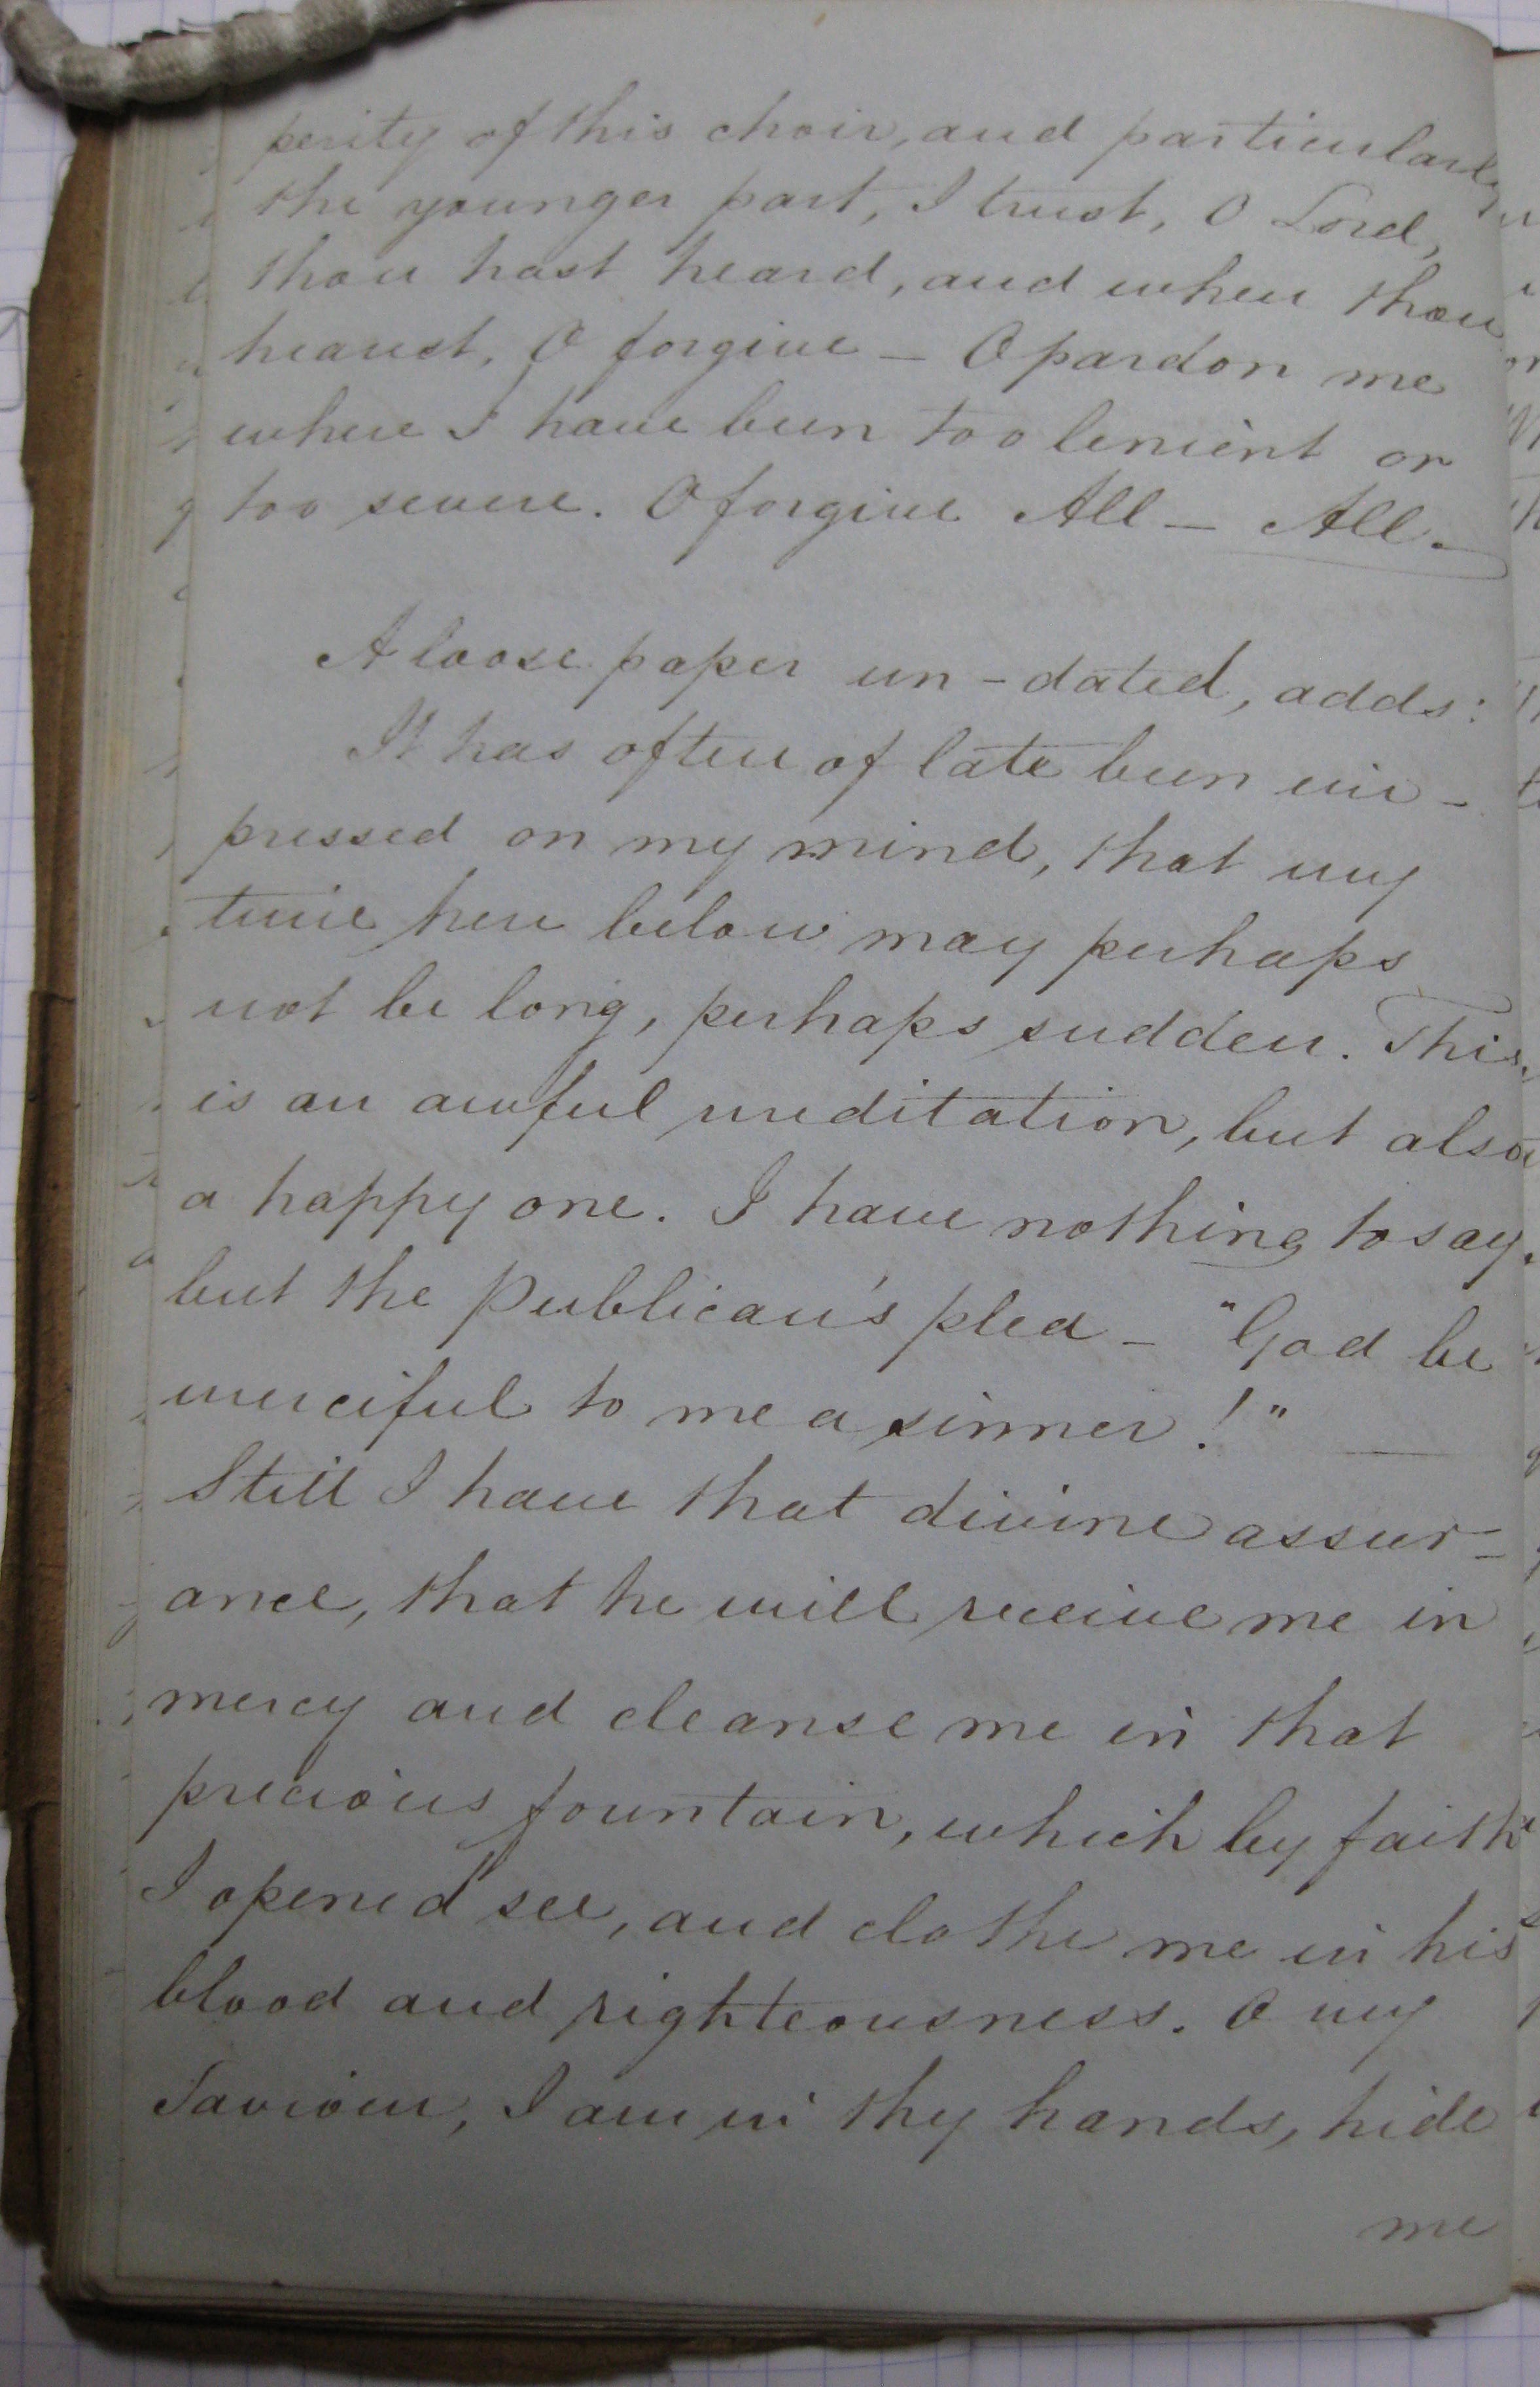 perity of this choir, and particularly
the younger part, I trust, O Lord,
thou hast heard, and when thou
hearest, O forgive – O pardon me
where I have been too lenient or
too severe. O forgive All – All.
A loose paper un-dated, adds:
It has often of late been im-
pressed on my mind, that my
time here below may perhaps
not be long, perhaps sudden. This
is an awful meditation, but also
a happy one. I have nothing to say
but the Publican's plea – "God be
merciful to me a sinner!" —
Still I have that divine assur-
ance, that he will receive me in
mercy and cleanse me in that
precious fountain, which by faith
I open'd see, and clothe me in his
blood and righteousness. O my
Saviour, I am in thy hands, hide
me